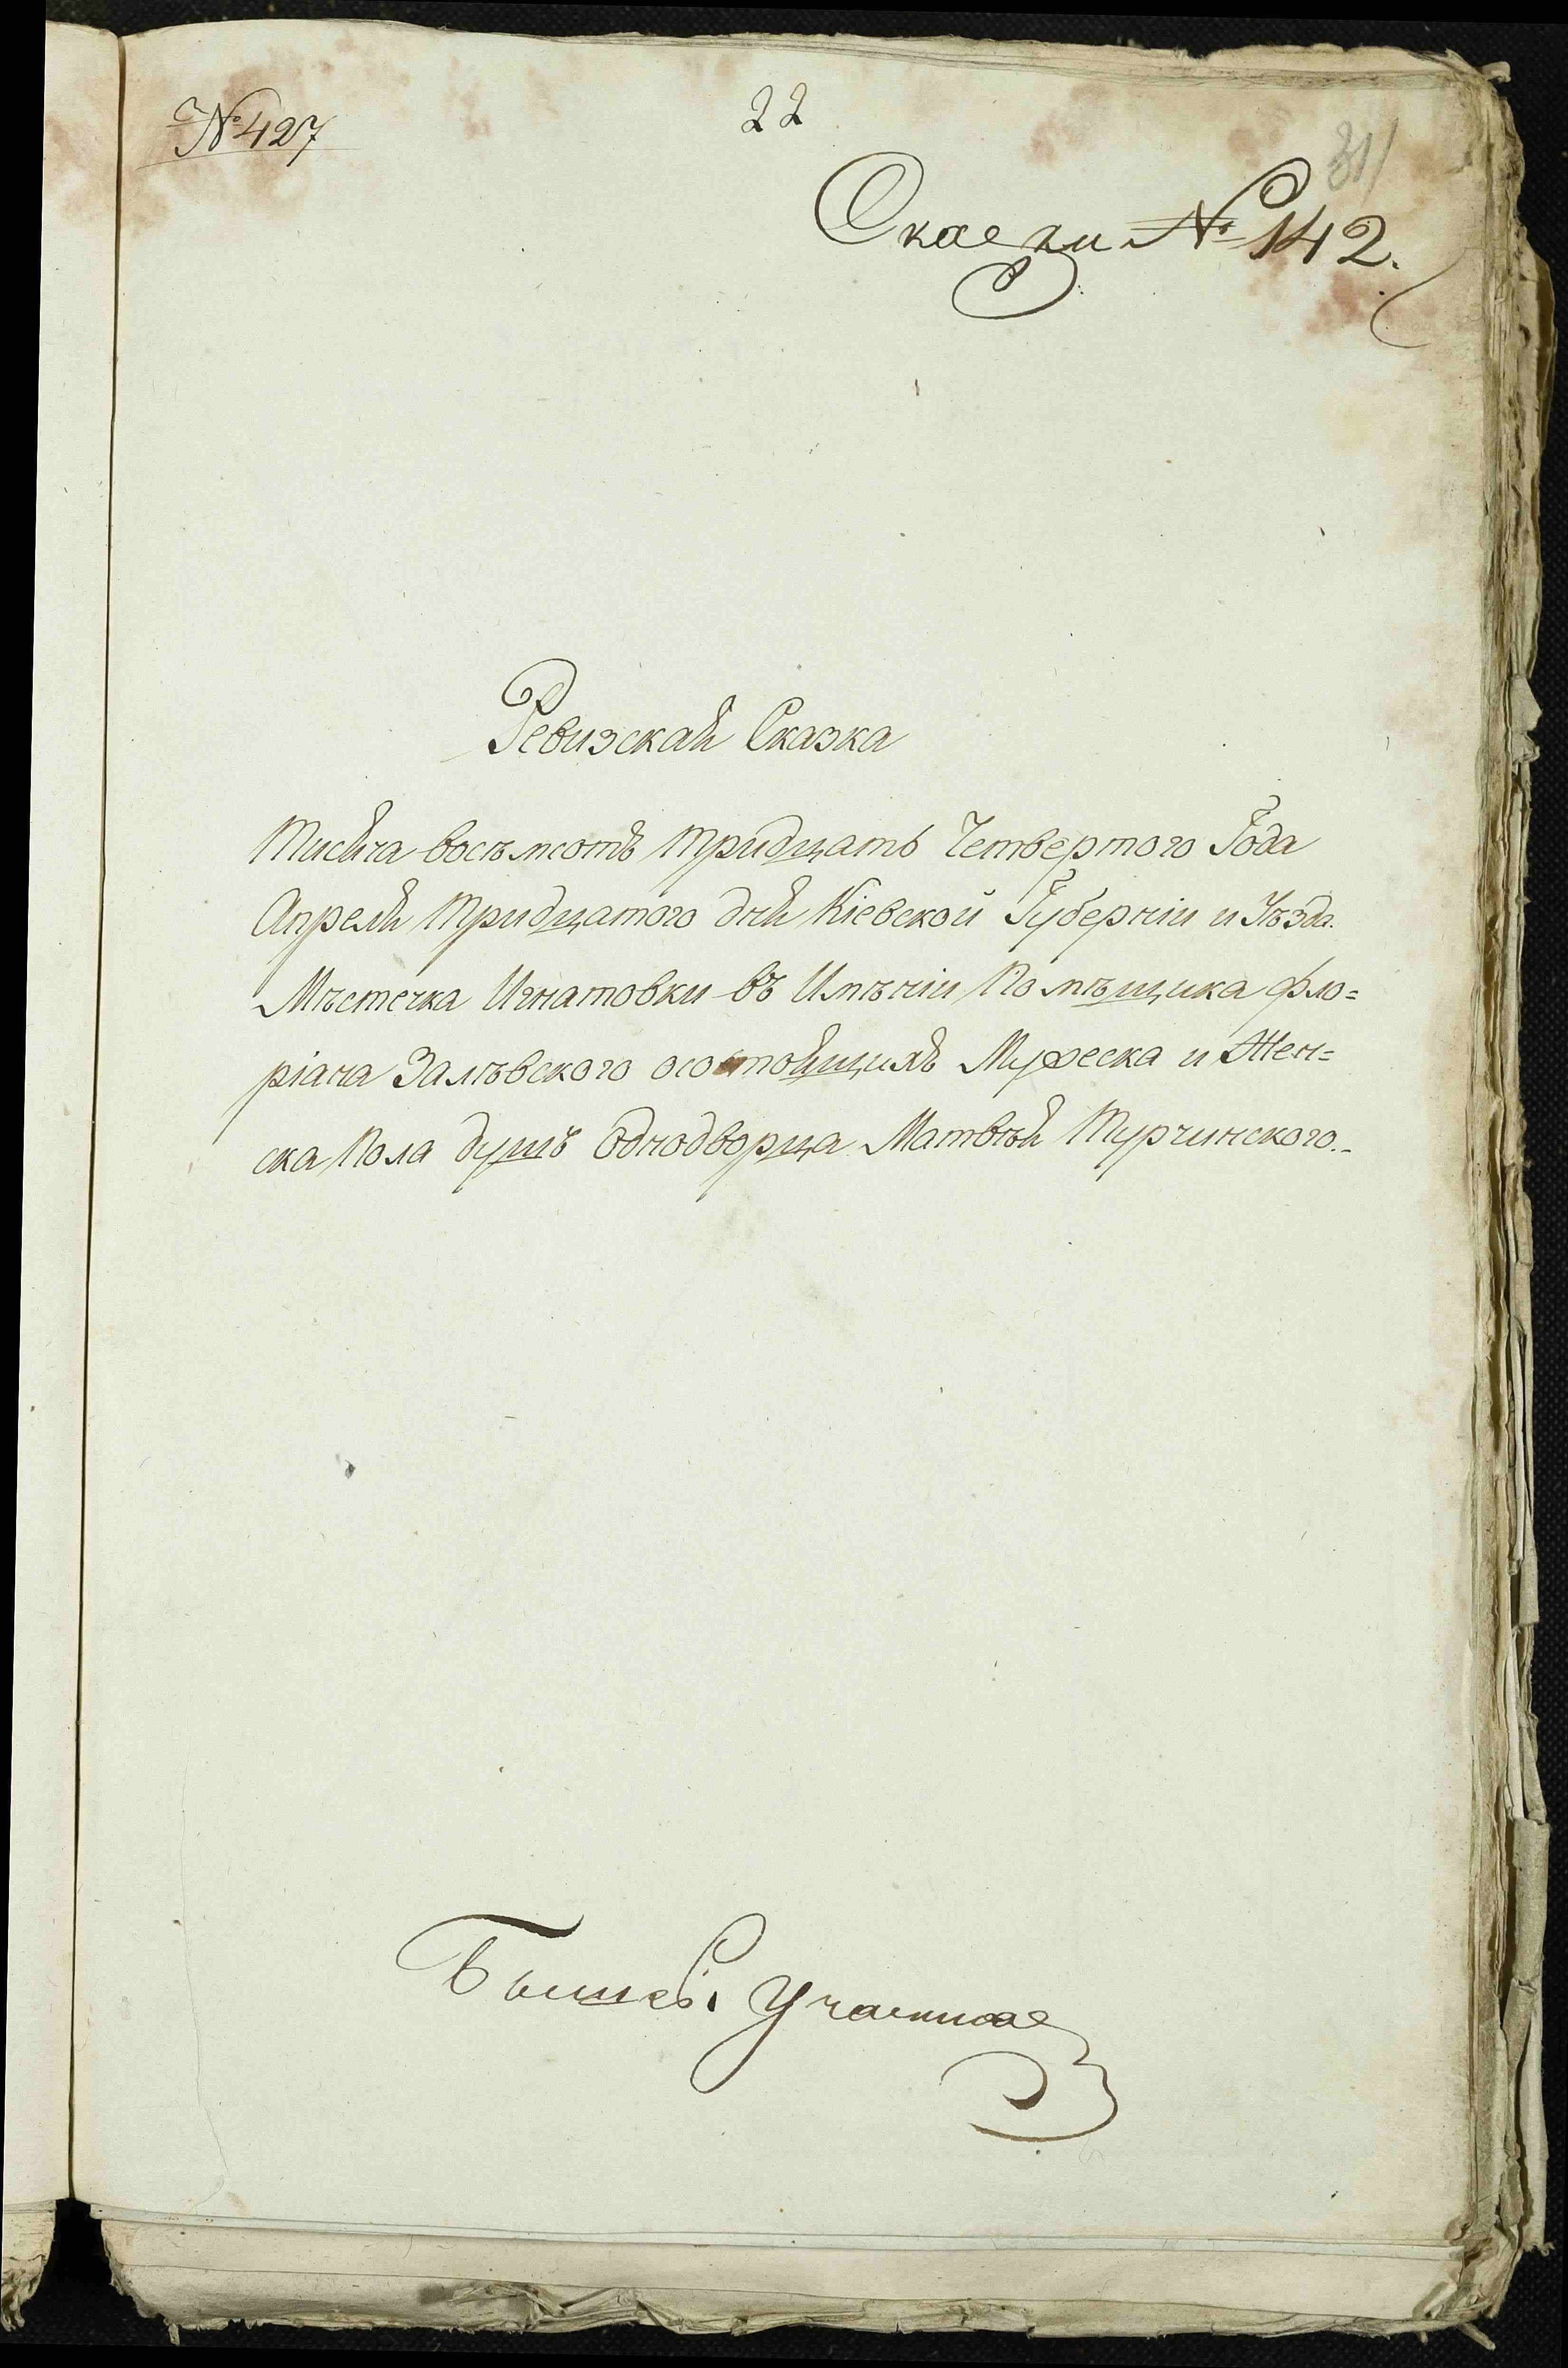 № 427
22
Сказки № 142.
Ревизская Сказка
Тисяча восъмсотъ тридцать Четвертого Года
Апреля тридцатого дня Кіевской Губерніи и Уѣзда.
Мѣстечка Игнатовки въ Имѣніи Помѣщика Фло=
ріана Залѣвского осостоящихъ Мужеска и Жен=
ска Пола душъ Однодворца Матвѣя Турчинского.